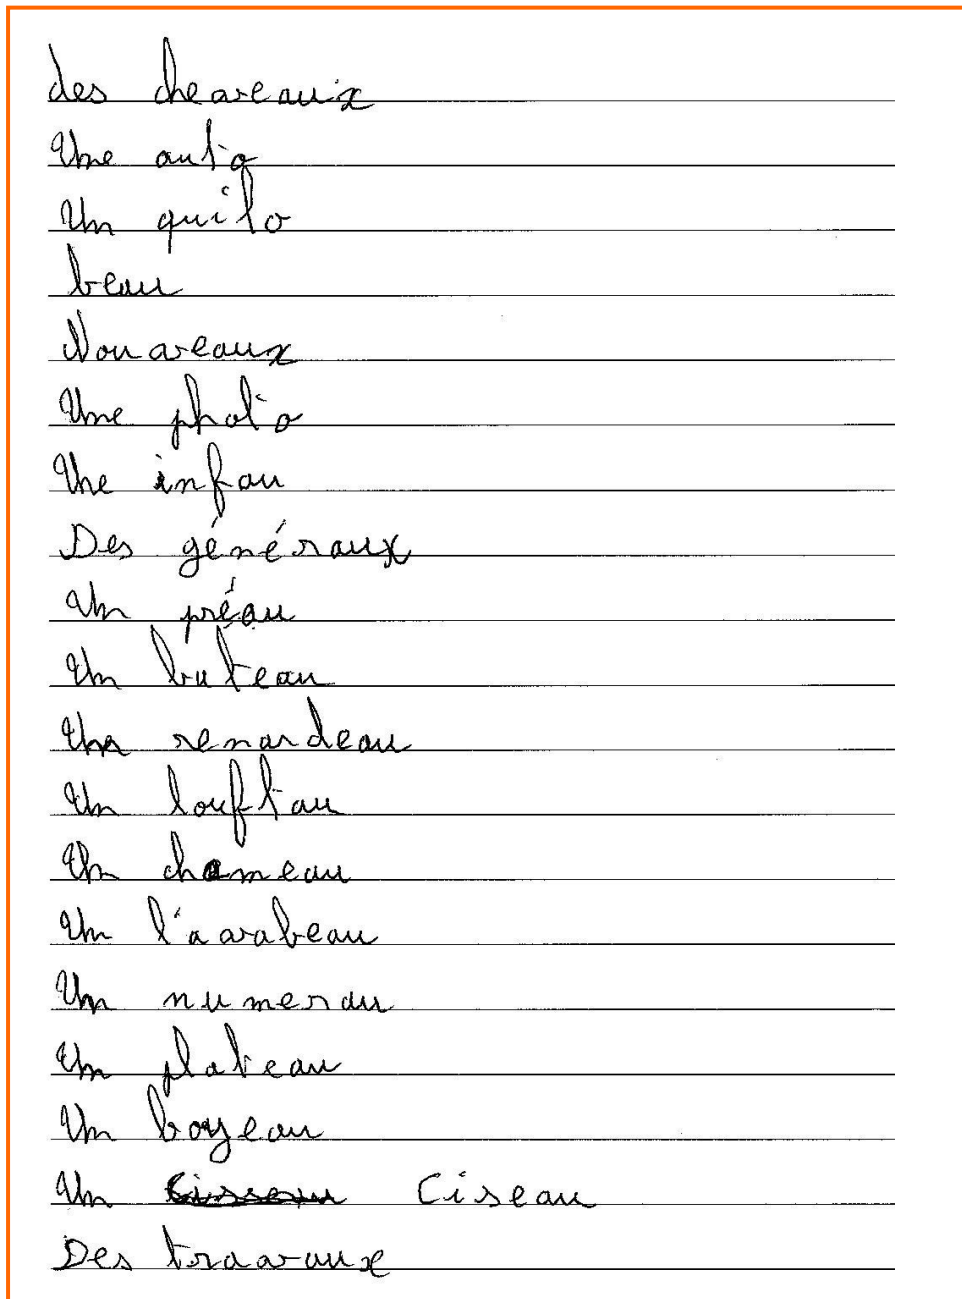 des cheveaux
Une auto
Un quilo
beau
Nouveaux
Une photo
Une infau
Des généraux
Un préau
Un buteau
Un renardeau
Un louftau
Un chameau
Un l'avabeau
Un numerau
Un plateau
Un boyeau
Un Ciseau
Des travaux